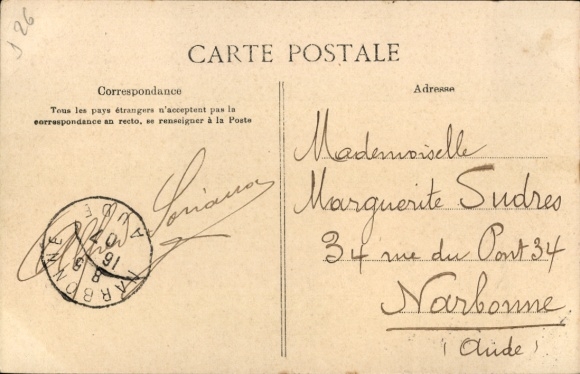 J 26
CARTE POSTALE
Correspondance
Tous les pays étrangers n'acceptent pas la
correspondance au recto, se renseigner à la Poste
Soriano
NARBONNE
AUDE
8
16
07
Adresse
Mademoiselle
Marguerite Sudres
34 rue du Pont 34
Narbonne
(Aude)